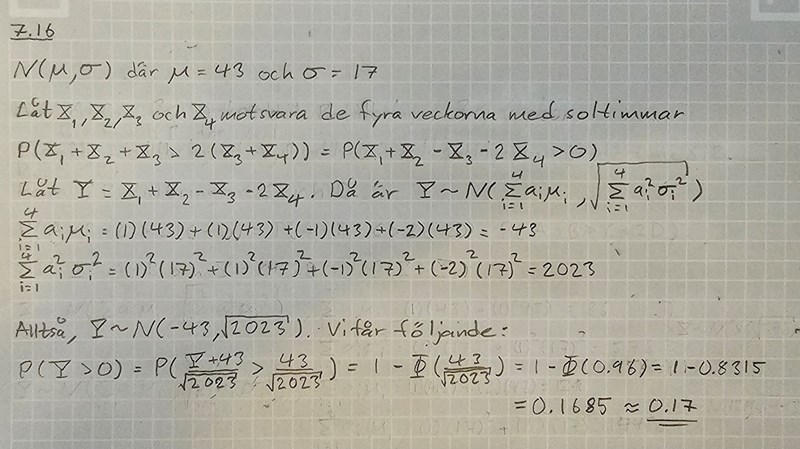 7.16
N(μ,σ) där μ = 43 och σ = 17
Låt X₁, X₂, X₃ och X₄ motsvara de fyra veckorna med soltimmar
P(X₁ + X₂ + X₃ > 2(X₃ + X₄)) = P(X₁ + X₂ - X₃ - 2X₄ > 0)
Låt Y = X₁ + X₂ - X₃ - 2X₄. Då är Y ~ N(∑_{i=1}^{4} aᵢμᵢ, √(∑_{i=1}^{4} aᵢ²σᵢ²))
∑_{i=1}^{4} aᵢμᵢ = (1)(43) + (1)(43) + (-1)(43) + (-2)(43) = -43
∑_{i=1}^{4} aᵢ²σᵢ² = (1)²(17)² + (1)²(17)² + (-1)²(17)² + (-2)²(17)² = 2023
Alltså, Y ~ N(-43, √2023). Vi får följande:
P(Y > 0) = P((Y+43)/√2023 > 43/√2023) = 1 - Φ(43/√2023) = 1 - Φ(0.96) = 1 - 0.8315
= 0.1685 ≈ 0.17